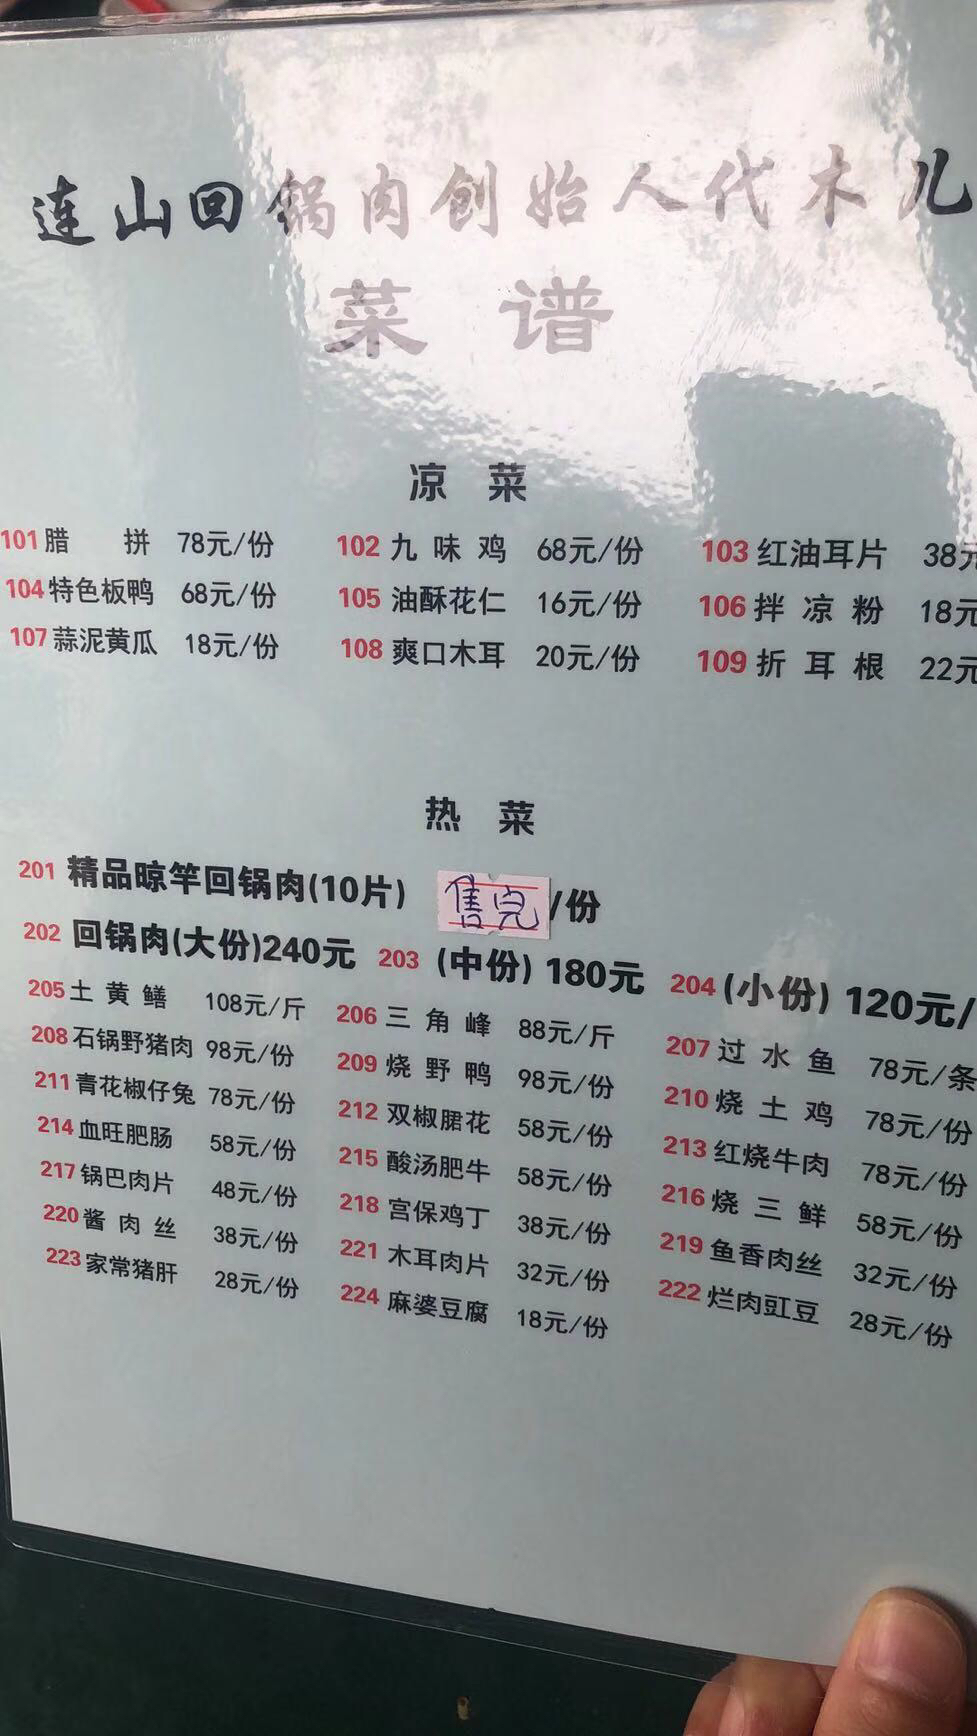 连山回锅肉创始人代木儿
菜 谱
凉 菜
101 腊 拼 78元/份 102 九味鸡 68元/份 103 红油耳片 38元
104 特色板鸭 68元/份 105 油酥花仁 16元/份 106 拌凉粉 18元
107 蒜泥黄瓜 18元/份 108 爽口木耳 20元/份 109 折耳根 22元
热 菜
201 精品晾竿回锅肉(10片) 售完/份
202 回锅肉(大份)240元 203 (中份) 180元 204 (小份) 120元/
205 土黄鳝 108元/斤 206 三角峰 88元/斤 207 过水鱼 78元/条
208 石锅野猪肉 98元/份 209 烧野鸭 98元/份 210 烧土鸡 78元/份
211 青花椒仔兔 78元/份 212 双椒腒花 58元/份 213 红烧牛肉 78元/份
214 血旺肥肠 58元/份 215 酸汤肥牛 58元/份 216 烧三鲜 58元/份
217 锅巴肉片 48元/份 218 宫保鸡丁 38元/份 219 鱼香肉丝 32元/份
220 酱肉丝 38元/份 221 木耳肉片 32元/份 222 烂肉豇豆 28元/份
223 家常猪肝 28元/份 224 麻婆豆腐 18元/份